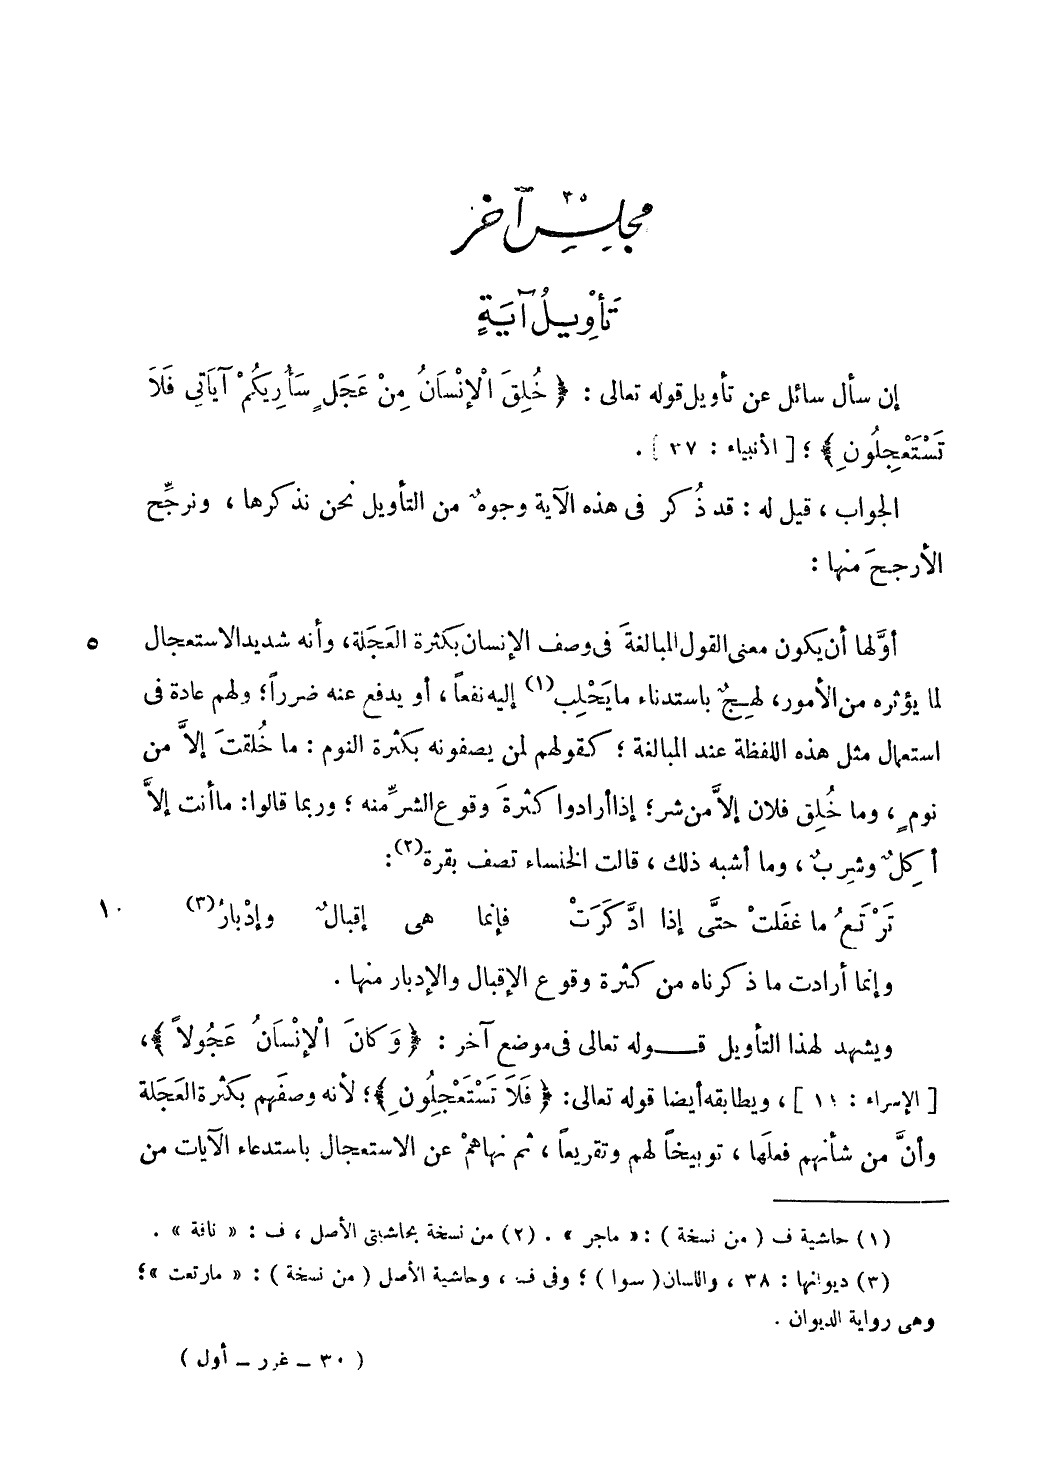 ٣٥
مجلس آخر
تَأْوِيلُ آيَةٍ
إن سأل سائل عن تأويل قوله تعالى : ﴿ خُلِقَ الْإِنْسَانُ مِنْ عَجَلٍ سَأُرِيكُمْ آيَاتِي فَلَا
تَسْتَعْجِلُونِ ﴾ ؛ [ الأنبياء : ٣٧ ] .
الجواب ، قيل له : قد ذُكر فى هذه الآية وجوهٌ من التأويل نحن نذكرها ، ونرجِّح
الأرجحَ منها :
أوَّلها أن يكون معنى القول المبالغةَ فى وصف الإنسان بكثرة العَجَلة، وأنه شديد الاستعجال ٥
لما يؤثره من الأمور، لهِجٌ باستدناء ما يَجْلِب(١) إليه نفعاً ، أو يدفع عنه ضرراً؛ ولهم عادة فى
استعمال مثل هذه اللفظة عند المبالغة ؛ كقولهم لمن يصفونه بكثرة النوم : ما خُلقتَ إلاَّ من
نومٍ ، وما خُلِق فلان إلاَّ من شر؛ إذا أرادوا كثرةَ وقوع الشرِّ منه ؛ وربما قالوا: ما أنت إلاَّ
أكلٌ وشربٌ ، وما أشبه ذلك ، قالت الخنساء تصف بقرة(٢):
تَرْتَعُ ما غفَلتْ حتَّى إذا ادَّكَرَتْ فإنما هى إقبالٌ وإدْبارُ(٣) ١٠
وإنما أرادت ما ذكرناه من كثرة وقوع الإقبال والإدبار منها .
ويشهد لهذا التأويل قوله تعالى فى موضع آخر : ﴿ وَكَانَ الْإِنْسَانُ عَجُولاً ﴾،
[ الإسراء : ١١ ] ، ويطابقه أيضا قوله تعالى: ﴿ فَلَا تَسْتَعْجِلُونِ ﴾؛ لأنه وصفَهم بكثرة العَجَلة
وأنَّ من شأنهم فعلَها ، توبيخاً لهم وتقريعاً ، ثم نهاهمْ عن الاستعجال باستدعاء الآيات من
(١) حاشية ف ( من نسخة ) : « ماجر » . (٢) من نسخة بحاشيتى الأصل ، ف : « نافة » .
(٣) ديوانها : ٣٨ ، واللسان ( سوا ) ؛ وفى ف ، وحاشية الأصل ( من نسخة ) : « مارتعت »؛
وهى رواية الديوان .
( ٣٠ ــ غرر ــ أول )